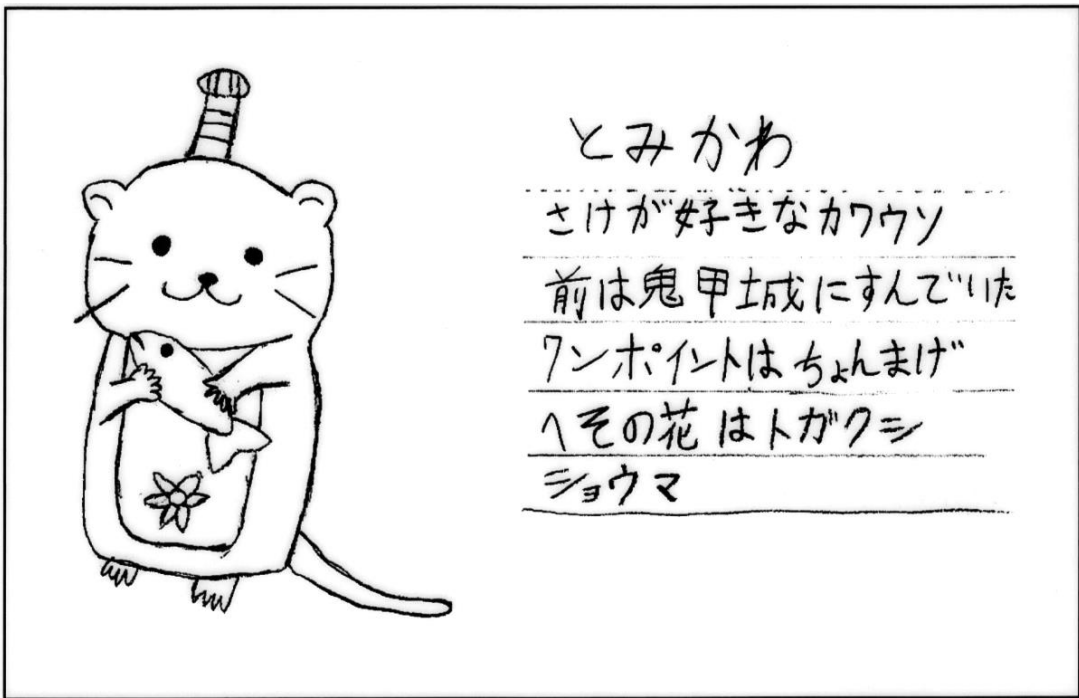 とみかわ
さけが好きなカワウソ
前は鬼甲城にすんでいた
ワンポイントはちょんまげ
へその花はトガクシ
ショウマ